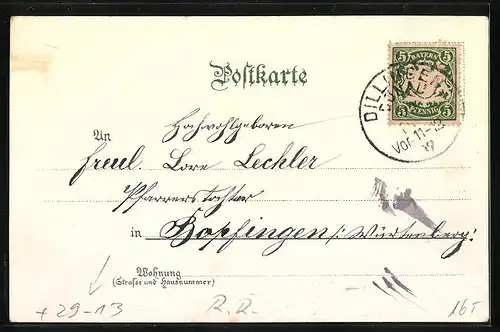 Postkarte
5 BAYERN 5
5 PFENNIG 5
DILLINGEN
Vor. 11-12
An
Hochwohlgeboren
Freul. Lore Lechler
Pfarrers Tochter
in Bopfingen i. Würtemberg.
Wohnung
(Straße und Hausnummer)
+ 29-13
R. R.
16.-